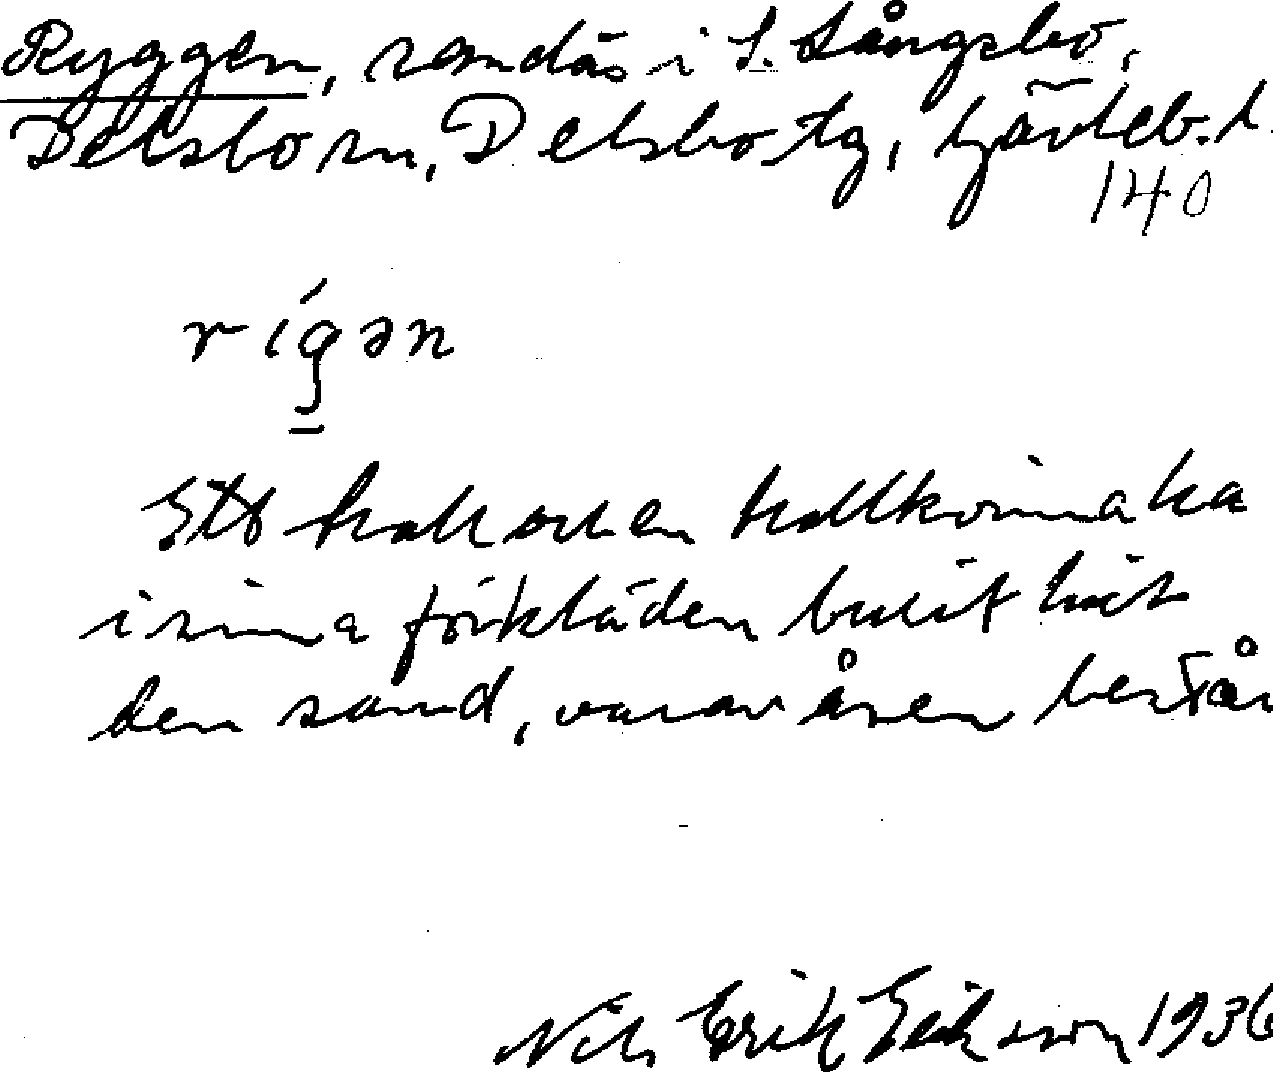 Ryggen, sandås i S. Långsbo,
Delsbo sn, Delsbo tg, Gävleb. l.
140
rígən
Ett troll och en trollkvinna ha
i sina förkläden burit hit
den sand, varav åsen består
Nils Erik Eriksson 1936